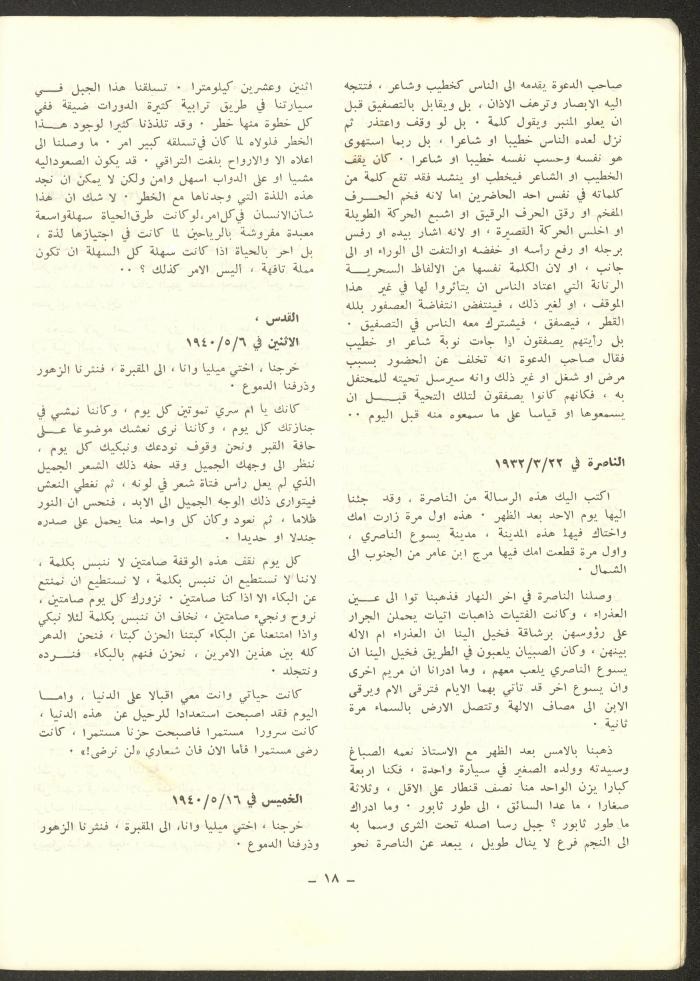 صاحب الدعوة يقدمه الى الناس كخطيب وشاعر ، فتتجه
اليه الابصار وترهف الاذان ، بل ويقابل بالتصفيق قبل
ان يعلو المنبر ويقول كلمة . بل لو وقف واعتذر ثم
نزل لعده الناس خطيبا او شاعرا ، بل ربما استهوى
هو نفسه وحسب نفسه خطيبا او شاعرا . كان يقف
الخطيب او الشاعر فيخطب او ينشد فقد تقع كلمة من
كلماته في نفس احد الحاضرين اما لانه فخم الحرف
المفخم او رقق الحرف الرقيق او اشبع الحركة الطويلة
او اخلس الحركة القصيرة ، او لانه اشار بيده او رفس
برجله او رفع رأسه او خفضه اوالتفت الى الوراء او الى
جانب ، او لان الكلمة نفسها من الالفاظ السحرية
الرنانة التي اعتاد الناس ان يتأثروا لها في غير هذا
الموقف ، او لغير ذلك ، فينتفض انتفاضة العصفور بلله
القطر ، فيصفق ، فيشترك معه الناس في التصفيق .
بل رأيتهم يصفقون اذا جاءت نوبة شاعر او خطيب
فقال صاحب الدعوة انه تخلف عن الحضور بسبب
مرض او شغل او غير ذلك وانه سيرسل تحيته للمحتفل
به ، فكانهم كانوا يصفقون لتلك التحية قبل ان
يسمعوها او قياسا على ما سمعوه منه قبل اليوم ..
الناصرة في ١٩٣٢/٣/٢٢
اكتب اليك هذه الرسالة من الناصرة ، وقد جئنا
اليها يوم الاحد بعد الظهر . هذه اول مرة زارت امك
واختاك فيها هذه المدينة ، مدينة يسوع الناصري ،
واول مرة قطعت امك فيها مرج ابن عامر من الجنوب الى
الشمال .
وصلنا الناصرة في اخر النهار فذهبنا توا الى عين
العذراء ، وكانت الفتيات ذاهبات اتيات يحملن الجرار
على رؤوسهن برشاقة فخيل الينا ان العذراء ام الاله
بينهن ، وكان الصبيان يلعبون في الطريق فخيل الينا ان
يسوع الناصري يلعب معهم ، وما ادرانا ان مريم اخرى
وان يسوع اخر قد تاتي بهما الايام فترقى الام ويرقى
الابن الى مصاف الالهة وتتصل الارض بالسماء مرة
ثانية .
ذهبنا بالامس بعد الظهر مع الاستاذ نعمه الصباغ
وسيدته وولده الصغير في سيارة واحدة ، فكنا اربعة
كبارا يزن الواحد منا نصف قنطار على الاقل ، وثلاثة
صغارا ، ما عدا السائق ، الى طور ثابور . وما ادراك
ما طور ثابور ؟ جبل رسا اصله تحت الثرى وسما به
الى النجم فرع لا ينال طويل ، يبعد عن الناصرة نحو
اثنين وعشرين كيلومترا . تسلقنا هذا الجبل في
سيارتنا في طريق ترابية كثيرة الدورات ضيقة ففي
كل خطوة منها خطر . وقد تلذذنا كثيرا لوجود هذا
الخطر فلولاه لما كان في تسلقه كبير امر . ما وصلنا الى
اعلاه الا والارواح بلغت التراقي . قد يكون الصعوداليه
مشيا او على الدواب اسهل وامن ولكن لا يمكن ان نجد
هذه اللذة التي وجدناها مع الخطر . لا شك ان هذا
شأن الانسان في كل امر،لو كانت طرق الحياة سهلة واسعة
معبدة مفروشة بالرياحين لما كانت في اجتيازها لذة ،
بل احر بالحياة اذا كانت سهلة كل السهلة ان تكون
مملة تافهة ، أليس الامر كذلك ؟ ..
القدس ،
الاثنين في ١٩٤٠/٥/٦
خرجنا ، اختي ميليا وانا ، الى المقبرة ، فنثرنا الزهور
وذرفنا الدموع .
كانك يا ام سري تموتين كل يوم ، وكاننا نمشي في
جنازتك كل يوم ، وكاننا نرى نعشك موضوعا على
حافة القبر ونحن وقوف نودعك ونبكيك كل يوم ،
ننظر الى وجهك الجميل وقد حفه ذلك الشعر الجميل
الذي لم يعل رأس فتاة شعر في لونه ، ثم نغطي النعش
فيتوارى ذلك الوجه الجميل الى الابد ، فنحس ان النور
ظلاما ، ثم نعود وكان كل واحد منا يحمل على صدره
جندلا او حديدا .
كل يوم نقف هذه الوقفة صامتين لا ننبس بكلمة ،
لاننا لا نستطيع ان ننبس بكلمة ، لا نستطيع ان نمتنع
عن البكاء الا اذا كنا صامتين . نزورك كل يوم صامتين ،
نروح ونجيء صامتين ، نخاف ان ننبس بكلمة لئلا نبكي
واذا امتنعنا عن البكاء كبتنا الحزن كبتا ، فنحن الدهر
كله بين هذين الامرين ، نحزن فنهم بالبكاء فنرده
ونتجلد .
كانت حياتي وانت معي اقبالا على الدنيا ، واما
اليوم فقد اصبحت استعدادا للرحيل عن هذه الدنيا ،
كانت سرورا مستمرا فاصبحت حزنا مستمرا ، كانت
رضى مستمرا فأما الان فان شعاري «لن نرضى!» .
الخميس في ١٩٤٠/٥/١٦
خرجنا ، اختي ميليا وانا، الى المقبرة ، فنثرنا الزهور
وذرفنا الدموع .
– ١٨ –